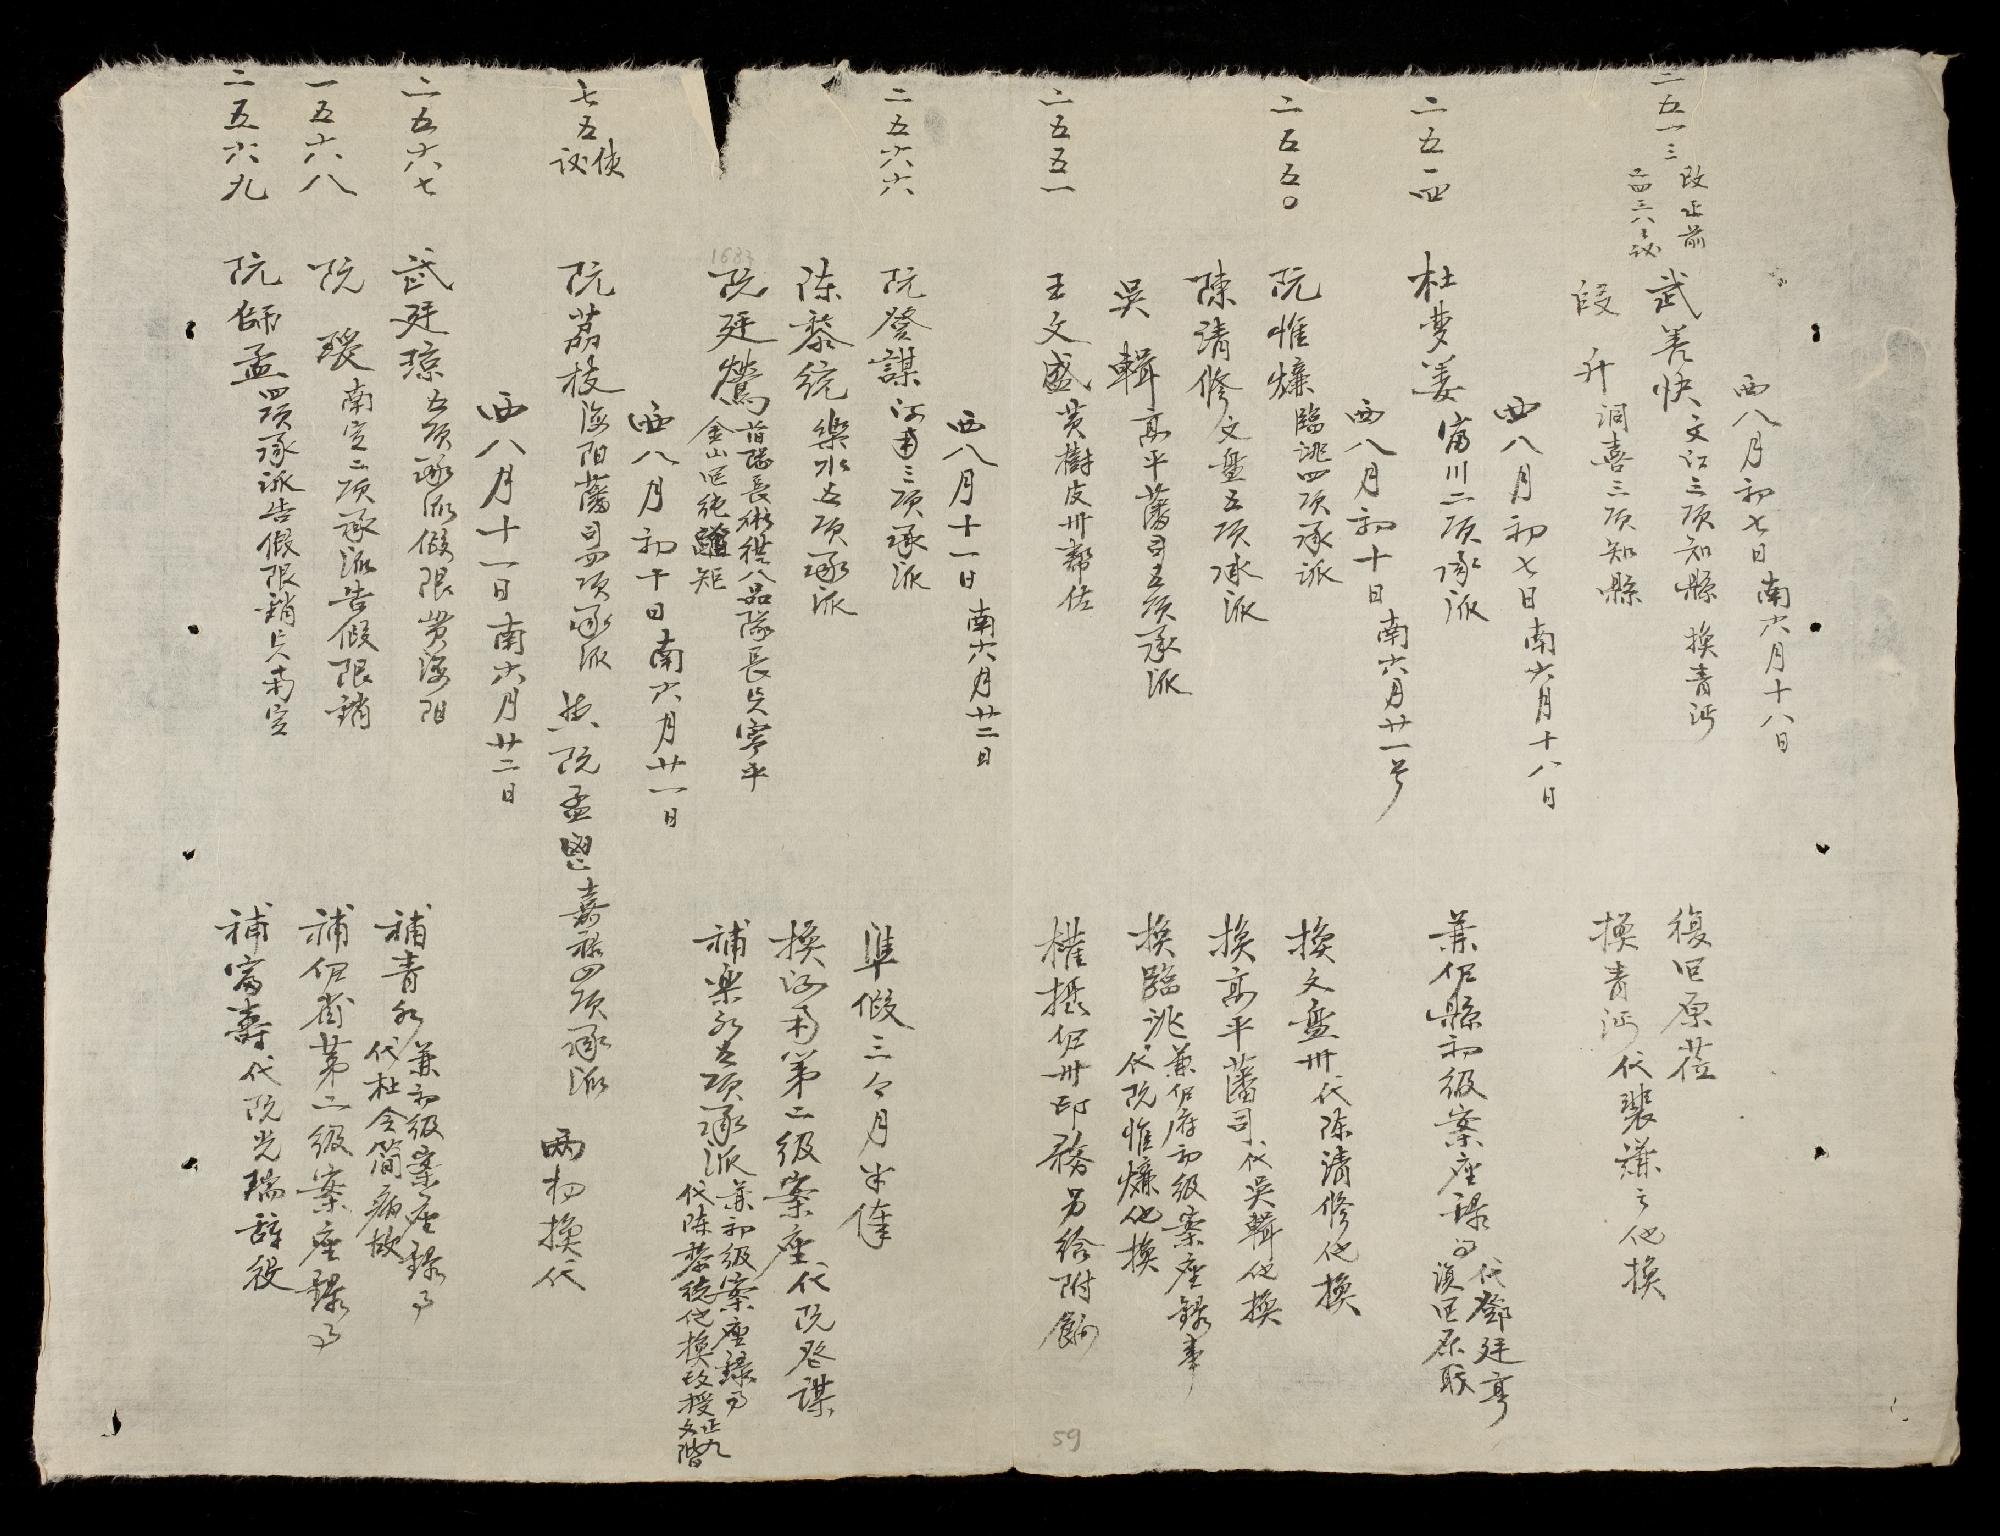 西八月初七日南六月十八日
二五一三
改正前
二四三六之秘
武善快文江三項知縣換青沔
復回原莅
段升洞喜三項知縣
換青沔代裴謙之他換
西八月初七日南六月十八日
二五一四
杜夢姜富川二項承派
兼伬縣初級案座錄
代鄧廷亨
回原
西八月初十日南六月廿一号
二五五〇
阮惟㷳臨洮四項承派
換文盤卅代陳清修他換
陳清修文盤五項承派
換高平藩司代吳輯他換
吳輯高平藩司五項承派
換臨洮
兼伬府初級案座錄事
代阮惟㷳他換
二五五一
王文盛黄樹皮卅幫佐
權摂伬卅印務另給附餉
西八月十一日南六月廿二日
二五六六
阮登謀河甫三項承派
準假三个月半俸
陈黎统樂水五項承派
換河甫第二級案座代阮登謀
1683
阮廷鶯
首隊長 八品隊長 寧平
金山
補樂水五項承派
兼初級案座錄
代陈黎统他換改授正九文階
西八月初十日南六月廿一日
七五
使
秘
阮荔枝海阳藩司四項承派
阮孟 嘉禄四項承派
两相換代
西八月十一日南六月廿二日
二五六七
武廷瓊五項承派假限貫海阳
補青水
兼初級案座錄
代杜令簡病故
一五六八
阮 南定二項承派告假限銷
補伬省第二級案座錄
二五六九
阮師孟四項承派告假限銷 南定
補富壽代阮光瑞辞役
59